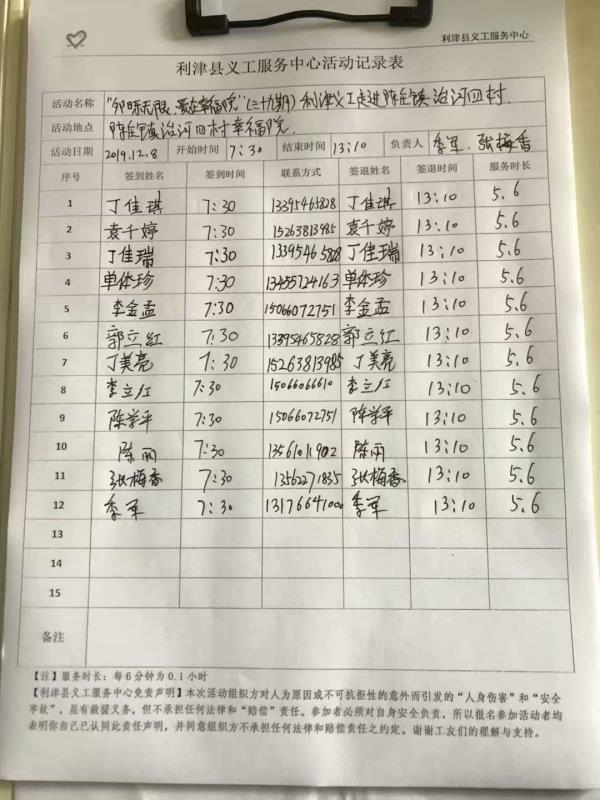 利津县义工服务中心
利津县义工服务中心活动记录表
活动名称 "邻（三十九期）利津义工走进陈庄镇治河四村.
活动地点 陈庄镇治河四村幸福院.
活动日期 2019.12.8 开始时间 7:30 结束时间 13:10 负责人 李军.张梅香
序号 签到姓名 签到时间 联系方式 签退姓名 签退时间 服务时长
1 丁佳琪 7:30 13395465828 丁佳琪 13:10 5.6
2 袁千婷 7:30 15263813985 袁千婷 13:10 5.6
3 丁佳瑞 7:30 13395465828 丁佳瑞 13:10 5.6
4 单体珍 7:30 13455724163 单体珍 13:10 5.6
5 李金孟 7:30 15066072751 李金孟 13:10 5.6
6 郭立红 7:30 13395465828 郭立红 13:10 5.6
7 丁美亮 7:30 15263813985 丁美亮 13:10 5.6
8 李立红 7:30 15066066610 李立红 13:10 5.6
9 陈学平 7:30 15066072751 陈学平 13:10 5.6
10 陈丽 7:30 13561011902 陈丽 13:10 5.6
11 张梅香 7:30 13562271835 张梅香 13:10 5.6
12 李军 7:30 13176641000 李军 13:10 5.6
13
14
15
备注
【注】服务时长：每6分钟为0.1小时
【利津县义工服务中心免责声明】本次活动组织方对人为原因或不可抗担性的意外而引发的“人身伤害”和“安全
事故”，虽有救援义务，但不承担任何法律和“赔偿”责任。参加者必须对自身安全负责，所以报名参加活动者均
表明你自己已认同此责任声明，并同意组织方不承担任何法律和赔偿责任之约定。谢谢工友们的理解与支持。